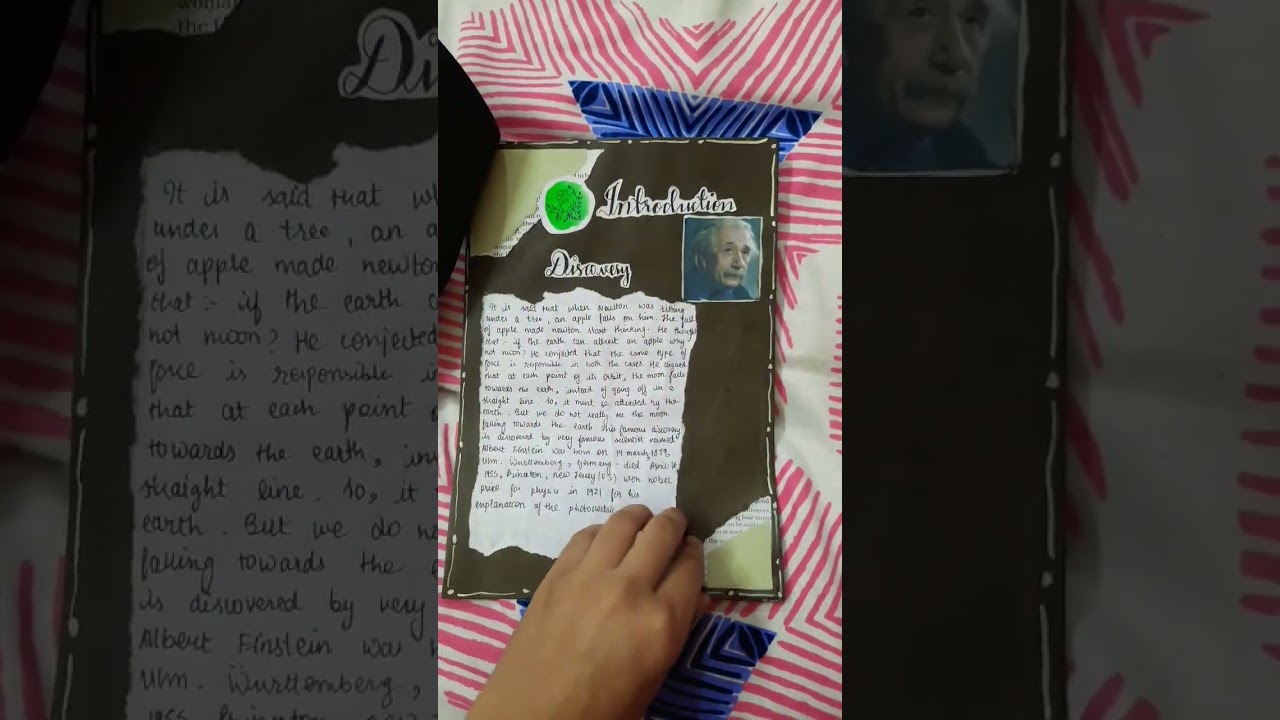 Introduction
Discovery
It is said that when Newton was sitting
under a tree, an apple falls on him. The fall
of apple made newton start thinking. He thought
that :- if the earth can attract an apple why
not moon? He conjected that the same type of
force is responsible in both the cases. He argued
that at each point of its orbit, the moon falls
towards the earth, instead of going off in a
straight line. So, it must be attracted by the
earth. But we do not really see the moon
falling towards the earth this famous discovery
is discovered by very famous scientist named
Albert Einstein was born on 14 march, 1879,
Ulm. Wurttemberg, Germany - died April 18
1955, Princeton, new Jersey (U.S) won nobel
prize for physics in 1921 for his
explanation of the